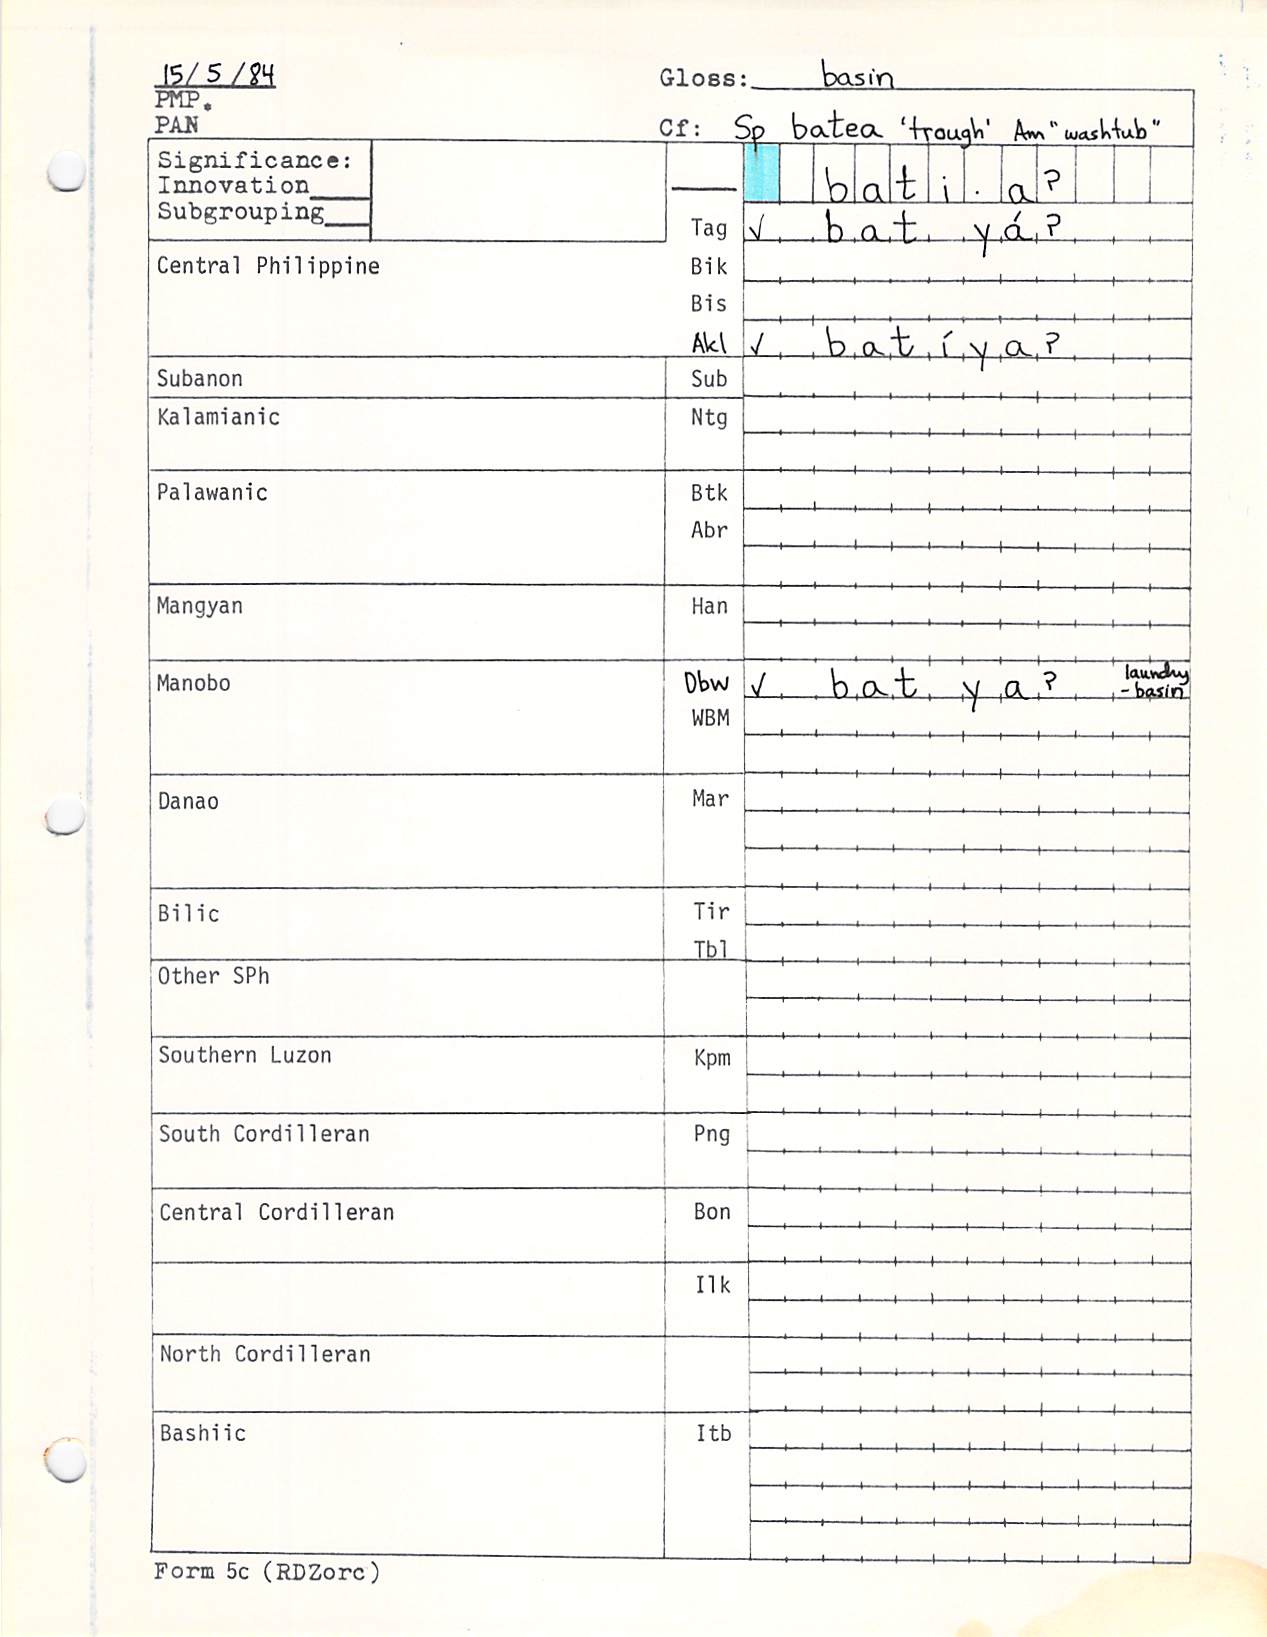 15/5/84
Gloss: basin
PMP.
PAN
Cf: Sp batea 'trough' Am "washtub"
Significance:
Innovation____
Subgrouping____
____ bati.aʔ
Tag ✓ bat yáʔ
Central Philippine Bik
Bis
Akl ✓ batíyaʔ
Subanon Sub
Kalamianic Ntg
Palawanic Btk
Abr
Mangyan Han
Manobo Dbw ✓ bat yaʔ laundry
-basin
WBM
Danao Mar
Bilic Tir
Tbl
Other SPh
Southern Luzon Kpm
South Cordilleran Png
Central Cordilleran Bon
Ilk
North Cordilleran
Bashiic Itb
Form 5c (RDZorc)